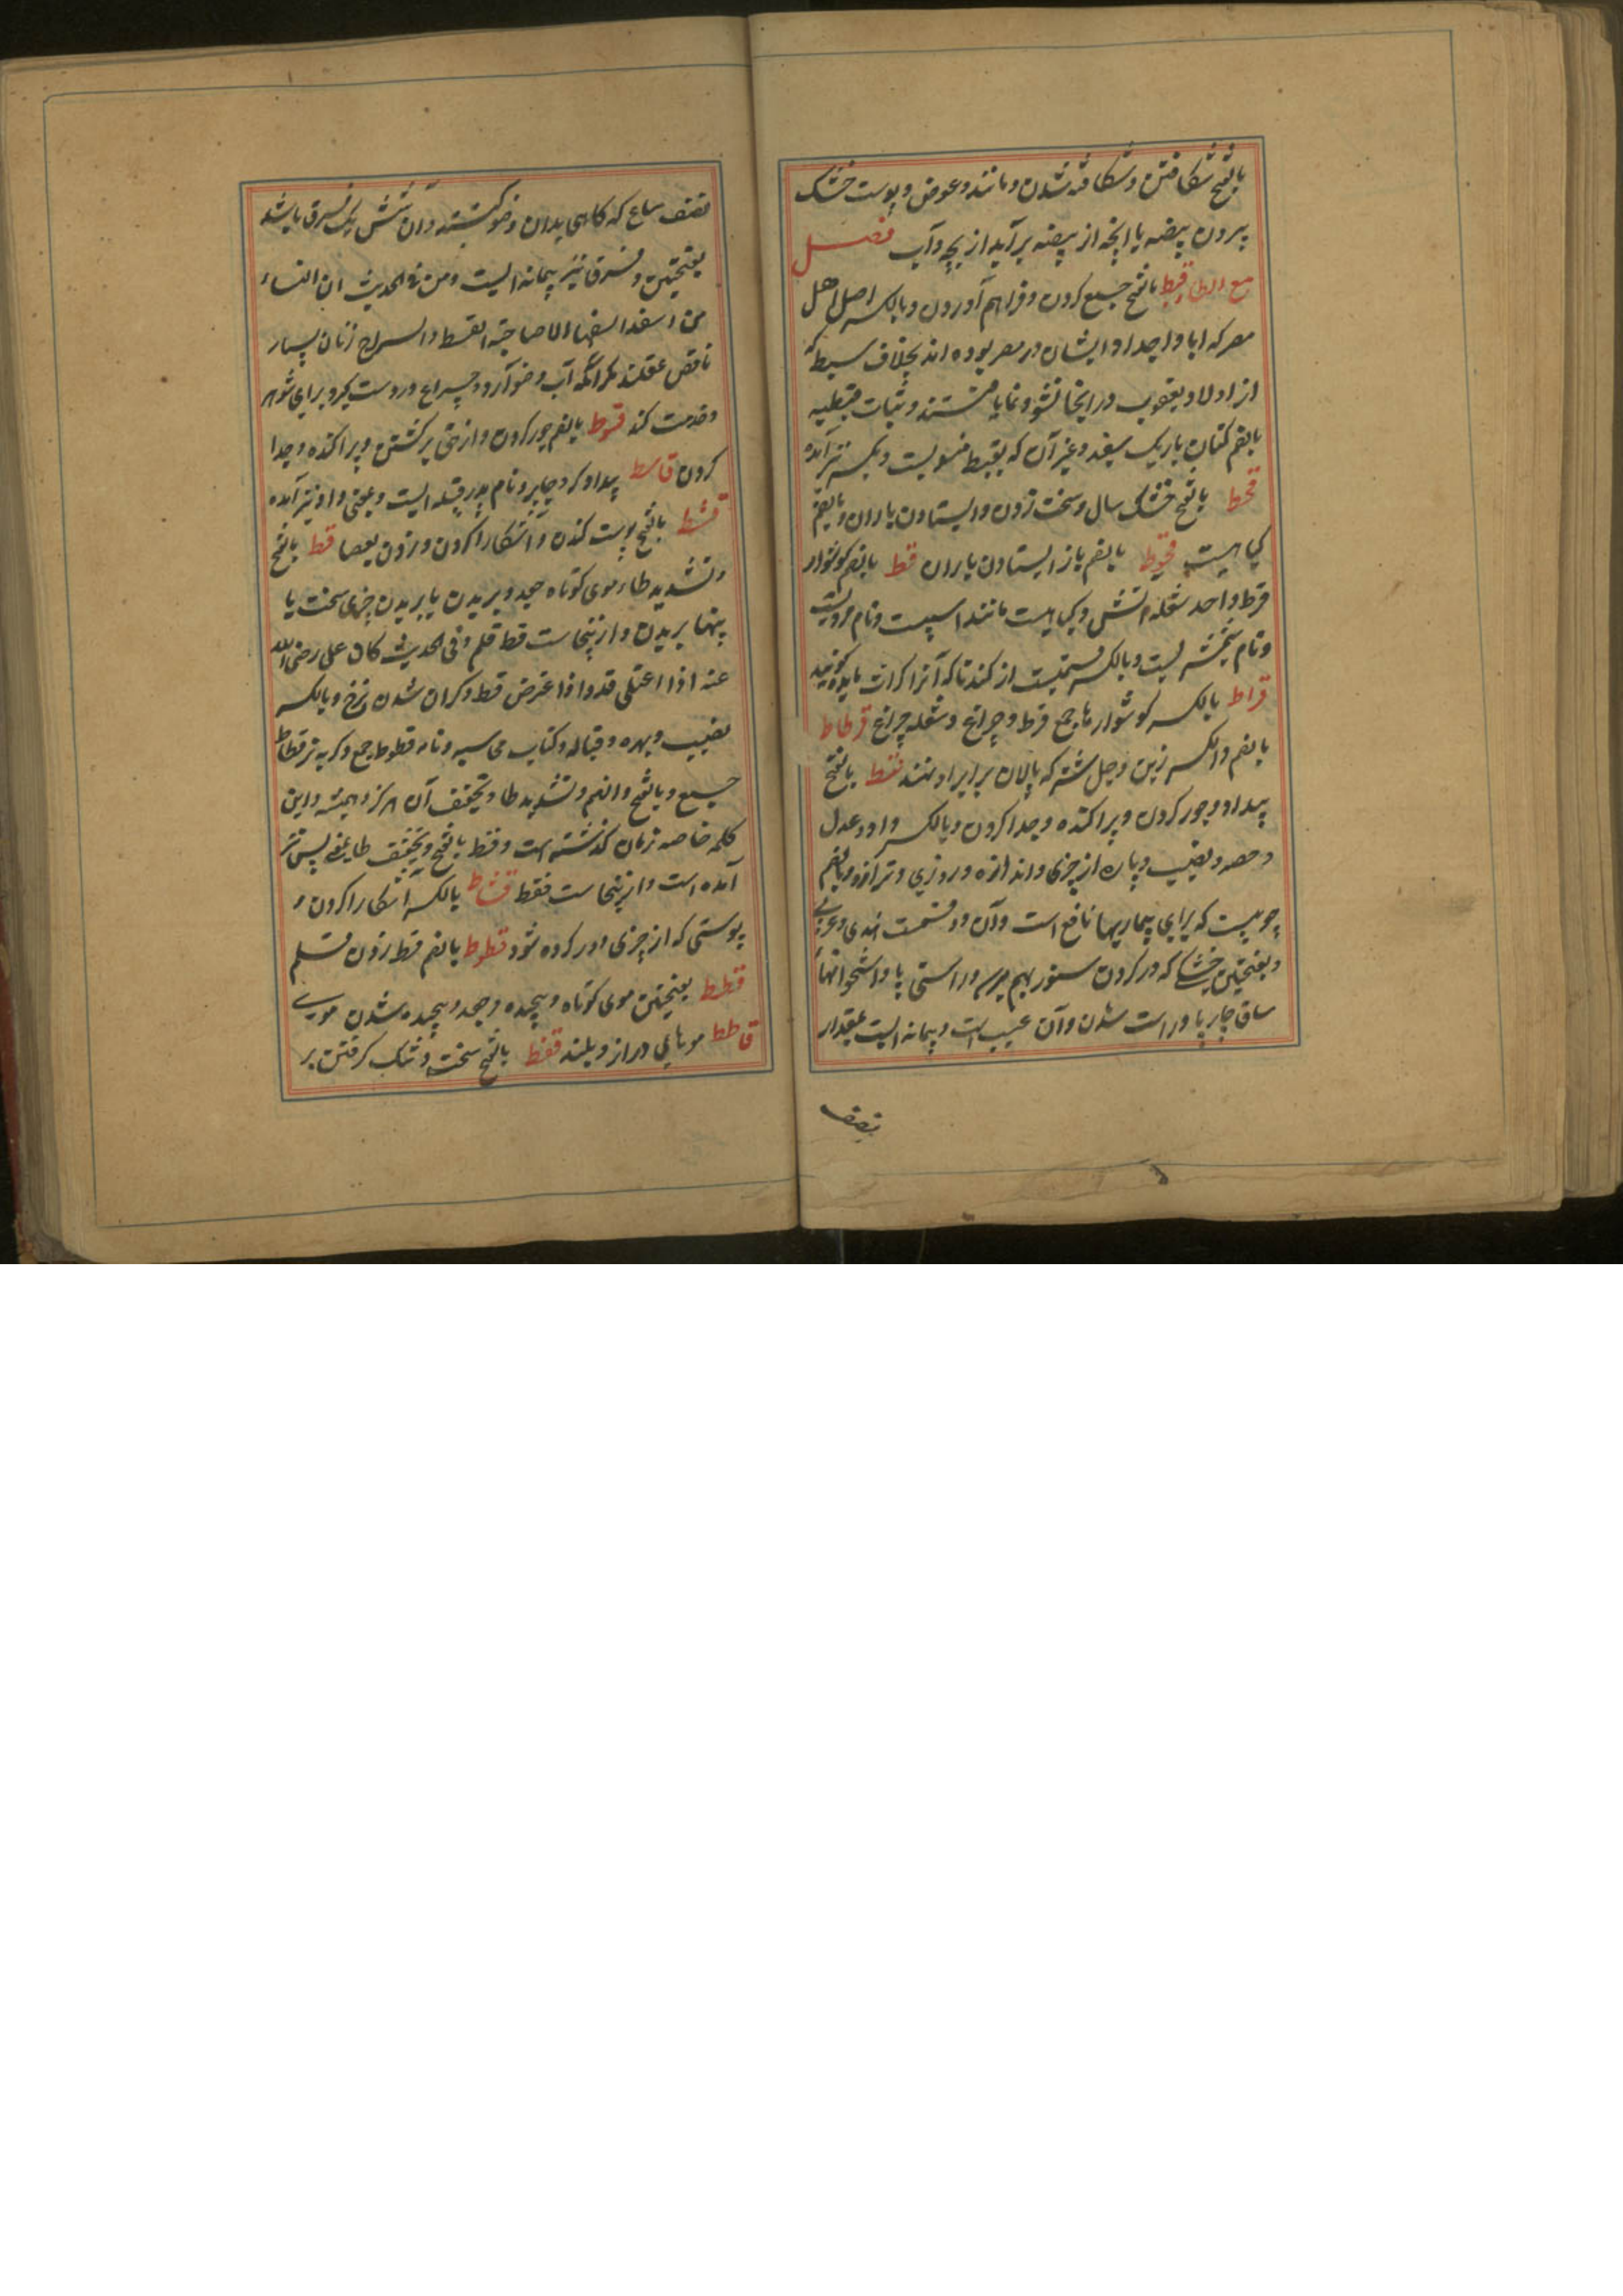 بالفتح شکافتن و شکافته شدن و مانند و عوض و پوست خشک
بیرون بیضه یا انچه از بیضه برآید از بچه و آب فصل
مع الطا قبط بالفتح جمع کردن و فراهم آوردن و بالکسر اصل اهل
مصر که ابا و اجداد ایشان در مصر بوده اند بخلاف سبط که
از اولاد یعقوب در انجا نشو و نما یافتستند و ثیاب قبطیه
بالضم کتان باریک سفید و غیر آن که بقبط منسوبست و بکسر نیز آمده
قحط بالفتح خشک سال و سخت زدن و ایستادن باران و بالضم
گیاهیست قحوط بالضم باز ایستادن باران قط بالضم گوشوار
قرط واحد شعله آتش و گیاهیست مانند اسپست و نام مردیست
و نام شمشیریست و بالکسر قسمیست از گندنا که آنرا کراث مایده گویند
قراط بالکسر گوشوارها جمع قرط و چراغ و شعله چراغ قرطاط
بالضم والکسر زین و جل شتر که پالان برابر او نهند قسط بالفتح
بیداد و جور کردن و پراکنده و جدا کردن و بالکسر داد و عدل
و حصه و نصیب و پاره از چیزی و اندازه و روزی و ترازو و بالضم
چوبیست که برای بیماریها نافع است و آن دو قسمت هندی و عربی
و بفتحتین خشکی که در گردن ستور بهم رسد و راستی پا و استخوانهاء
ساق چارپا و راست شدن و آن عیب است و پیمانه ایست بمقدار
نصف
نصف صاع که گاهی بدان وضو کنند و آن شش یک فرق باشد
بفتحتین و فرق نیز پیمانه ایست و من فی الحدیث ان النساء
من اسفه السفها الا صاحبة القسط والسراج زنان بسیار
ناقص عقلند مگر انگه آب وضو آرد و چراغ درست کرد برای شوهر
و خدمت کند قسوط بالضم جور کردن و از حق برگشتن و پراکنده و جدا
کردن قاسط بیدادگر و جابر و نام پدر قبیله ایست و بمعنی داد نیز آمده
قشط بالفتح پوست کندن و آشکارا کردن و زدن بعصا قط بالفتح
و تشدید طاء موی کوتاه جعد و بریدن یا بریدن چیزی سخت یا
پهنا بریدن و ازینجاست قط قلم و فی الحدیث کان علی رضی الله
عنه اذا اعتلی قد و اذا اعترض قط و گران شدن نرخ و بالکسر
نصیب و بهره و قباله و کتاب محاسبه و نامه قطوط جمع و گربه نر قطاط
جمع و بالفتح و الضم و تشدید طا و تخفیف آن هرگز و همیشه و این
کلمه خاصه زمان گذشته است و فقط بالفتح و تخفیف طا بمعنی پس نیز
آمده است و ازینجاست فقط قشاط بالکسر آشکارا کردن و
پوستی که از چیزی دور کرده شود قطوط بالضم قط زدن قلم
قطط بفتحتین موی کوتاه و پیچیده و جعد و پیچیده شدن موی
قاطط موهای دراز و بلند قفط بالفتح سخت و تنگ گرفتن بر